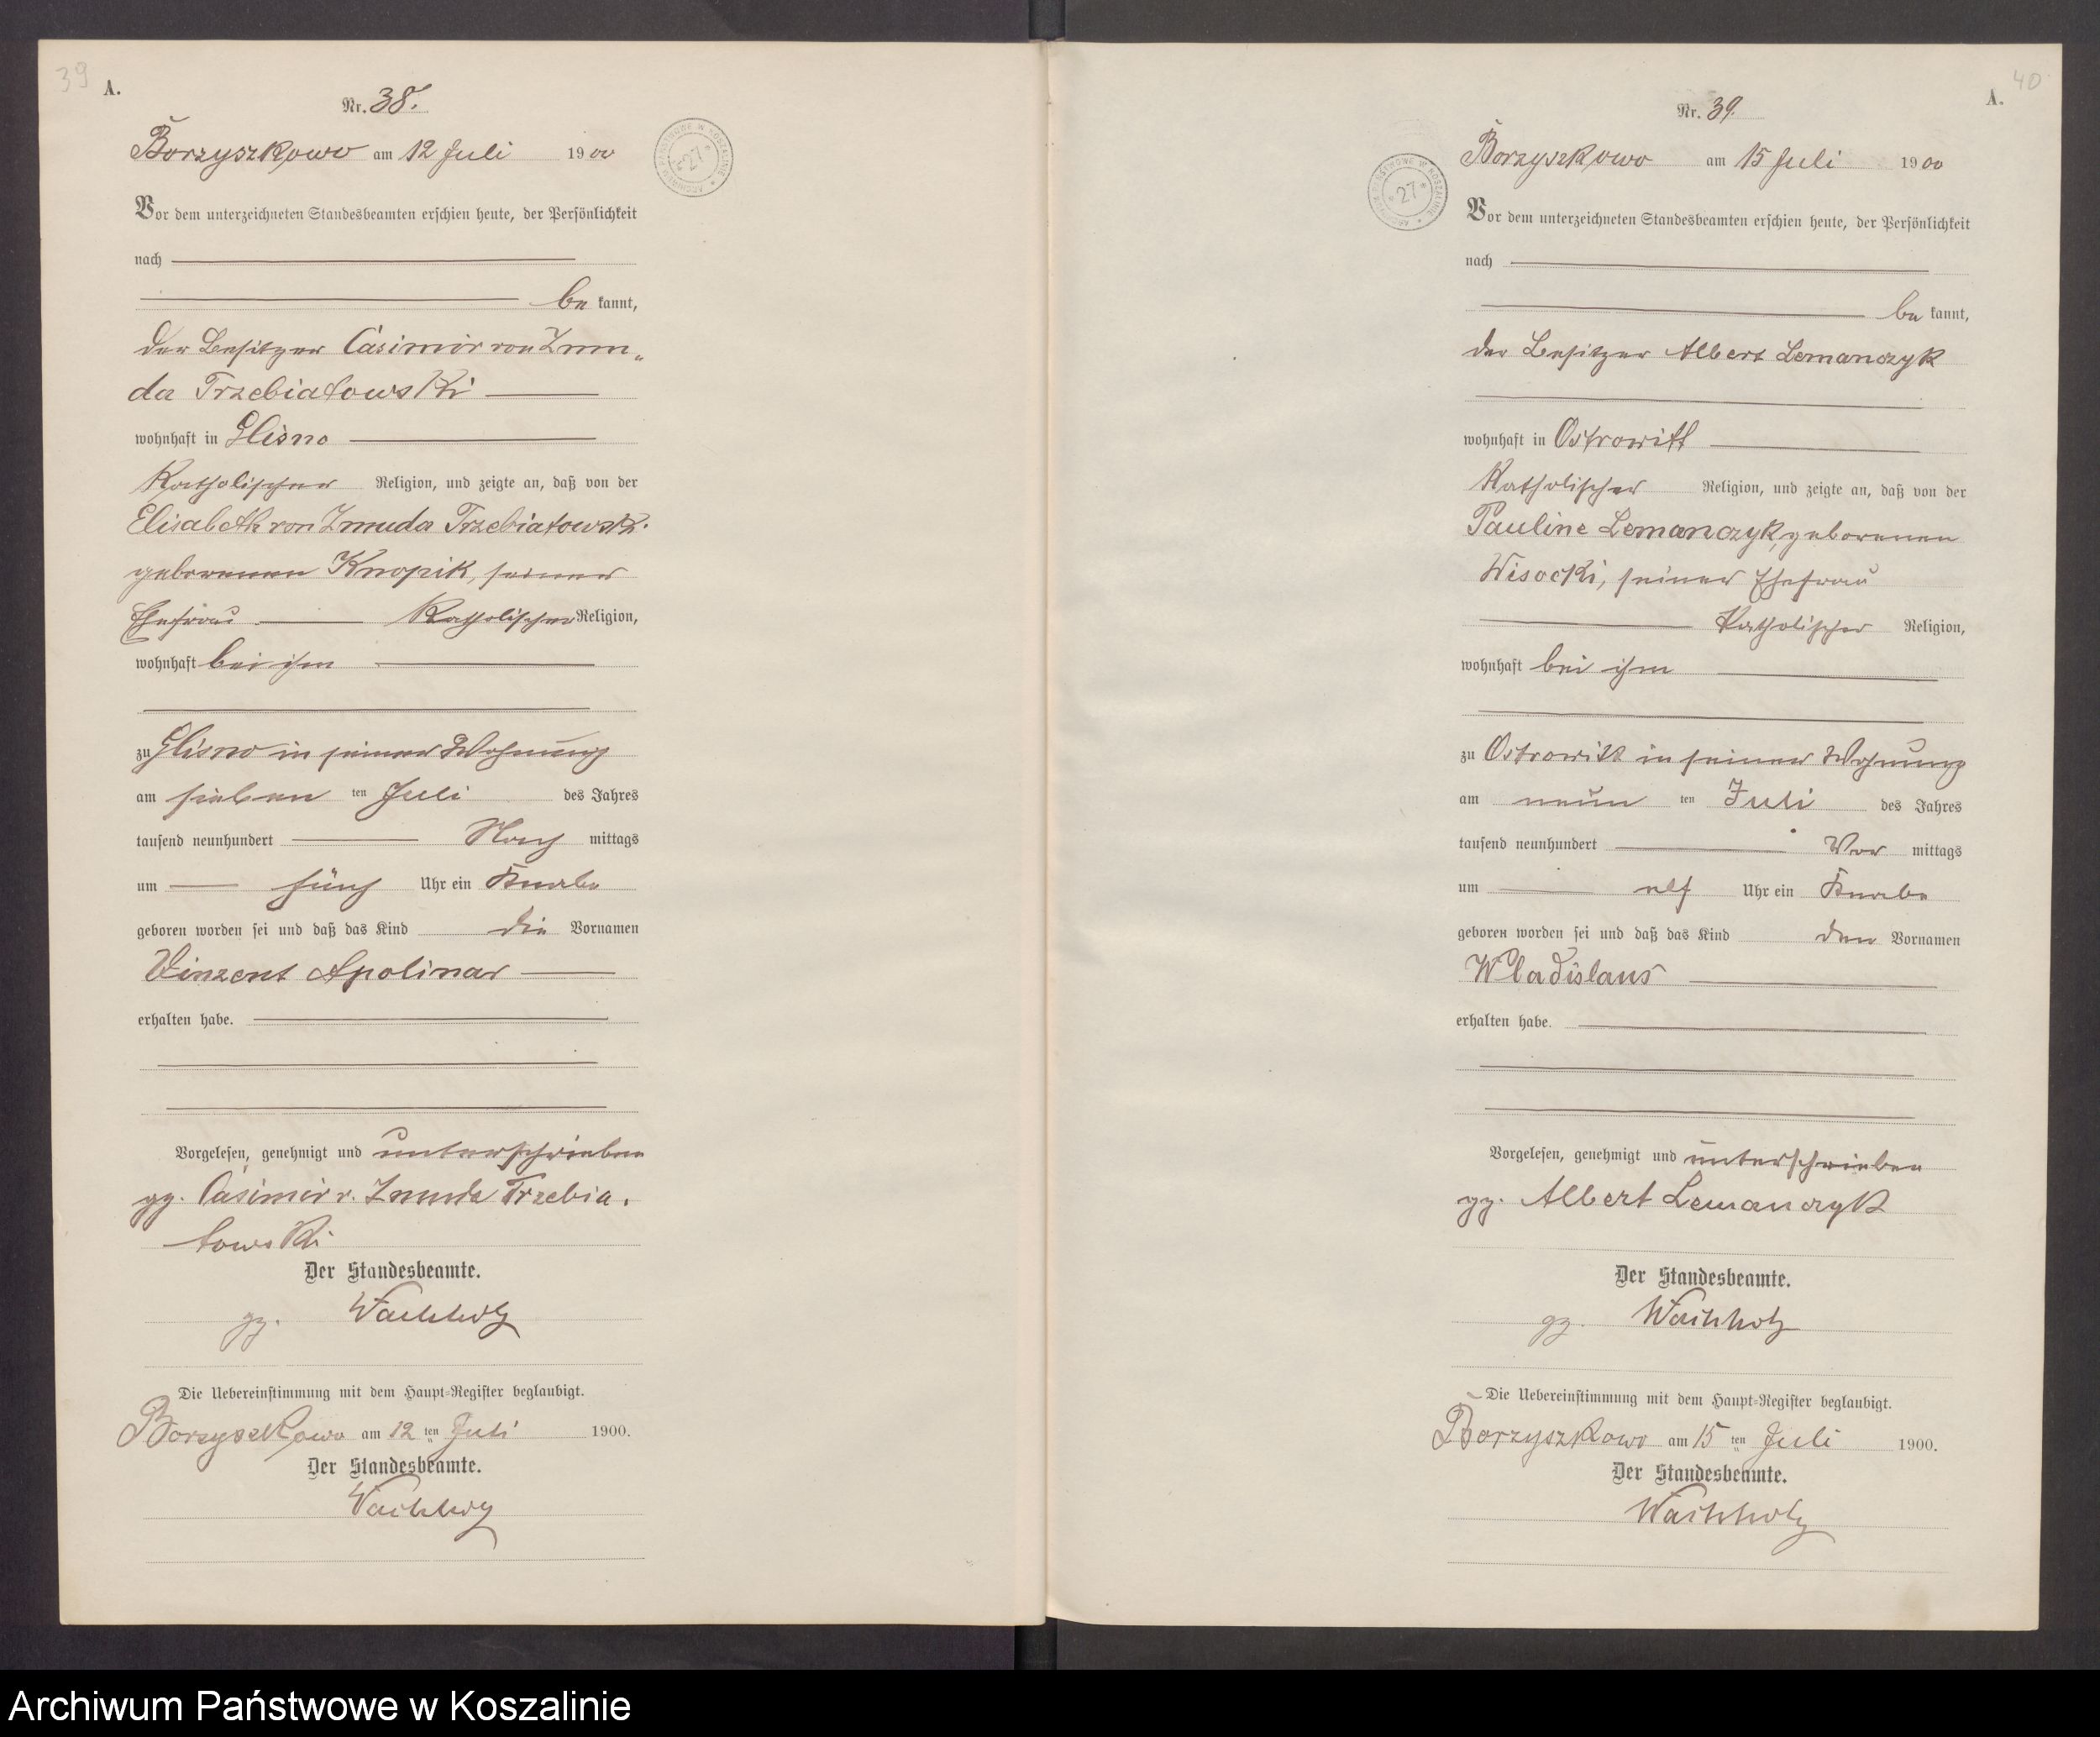 39
A.
Nr. 38.
Borzyszkowo am 12 Juli 1900
Vor dem unterzeichneten Standesbeamten erschien heute, der Persönlichkeit
nach
be kannt,
der Besitzer Casimir von Zmu„
da Trzebiatowski
wohnhaft in Glisno
Katholischer Religion, und zeigte an, daß von der
Elisabeth von Zmuda Trzebiatowski
geborenen Knopik, seiner
Ehefrau Katholischer Religion,
wohnhaft bei ihm
zu Glisno in seiner Wohnung
am sieben ten Juli des Jahres
tausend neunhundert Nach mittags
um fünf Uhr ein Knabe
geboren worden sei und daß das Kind die Vornamen
Vinzent Apolinar
erhalten habe.
Vorgelesen, genehmigt und unterschrieben
gz. Casimir v. Zmuda Trzebia.
towski
Der Standesbeamte.
gz. Wachholz
Die Uebereinstimmung mit dem Haupt-Register beglaubigt.
Borzyszkowo am 12 ten Juli 1900.
Der Standesbeamte.
Wachholz
ARCHIWUM PAŃSTWOWE W KOSZALINIE * 27 *
40
A.
Nr. 39.
Borzyszkowo am 15 Juli 1900
Vor dem unterzeichneten Standesbeamten erschien heute, der Persönlichkeit
nach
be kannt,
der Besitzer Albert Lemanczyk
wohnhaft in Ostrowitt
Katholischer Religion, und zeigte an, daß von der
Pauline Lemanczyk, geborenen
Wisocki, seiner Ehefrau
Katholischer Religion,
wohnhaft bei ihm
zu Ostrowitt in seiner Wohnung
am neun ten Juli des Jahres
tausend neunhundert Vor mittags
um elf Uhr ein Knabe
geboren worden sei und daß das Kind den Vornamen
Wladislaus
erhalten habe.
Vorgelesen, genehmigt und unterschrieben
gz. Albert Lemanczyk
Der Standesbeamte.
gz. Wachholz
Die Uebereinstimmung mit dem Haupt-Register beglaubigt.
Borzyszkowo am 15 ten Juli 1900.
Der Standesbeamte.
Wachholz
ARCHIWUM PAŃSTWOWE W KOSZALINIE * 27 *
Archiwum Państwowe w Koszalinie